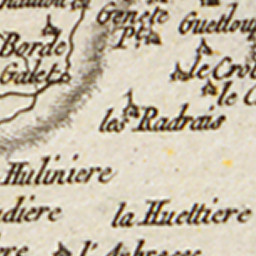 Genete
Guetlou
Pt
Borde
Galet
le Cro
le C
les Radrais
Huliniere
diere
la Huettiere